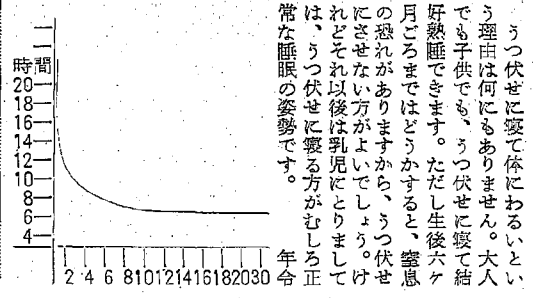 うつ伏せに寝て体にわるいとい
う理由は何にもありません。大人
でも子供でも、うつ伏せに寝て結
好熟睡できます。ただし生後六ケ
月ごろまではどうかすると、窒息
の恐れがありますから、うつ伏せ
にさせない方がよいでしょう。け
れどそれ以後は乳児にとりまして
は、うつ伏せに寝る方がむしろ正
常な睡眠の姿勢です。
時間
20
16
14
12
10
8
6
4
2 4 6 8 10 12 14 16 18 20 30
年令